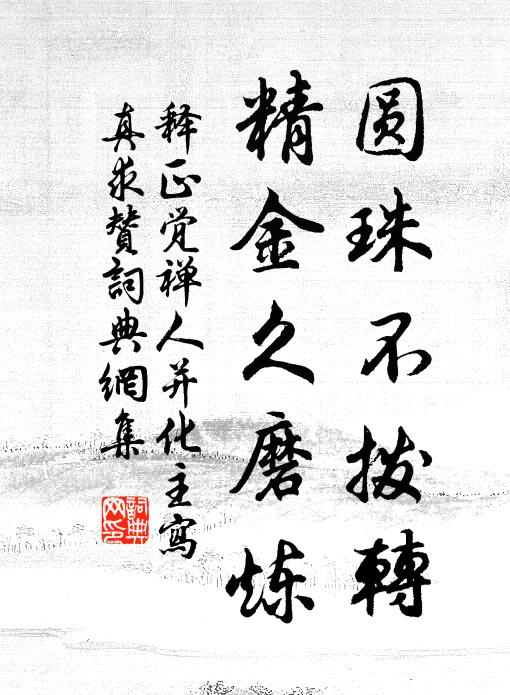 圆珠不拨轉
精金久磨炼
释正觉禅人并化主寫
真求赞詞典網集
詞典
网印